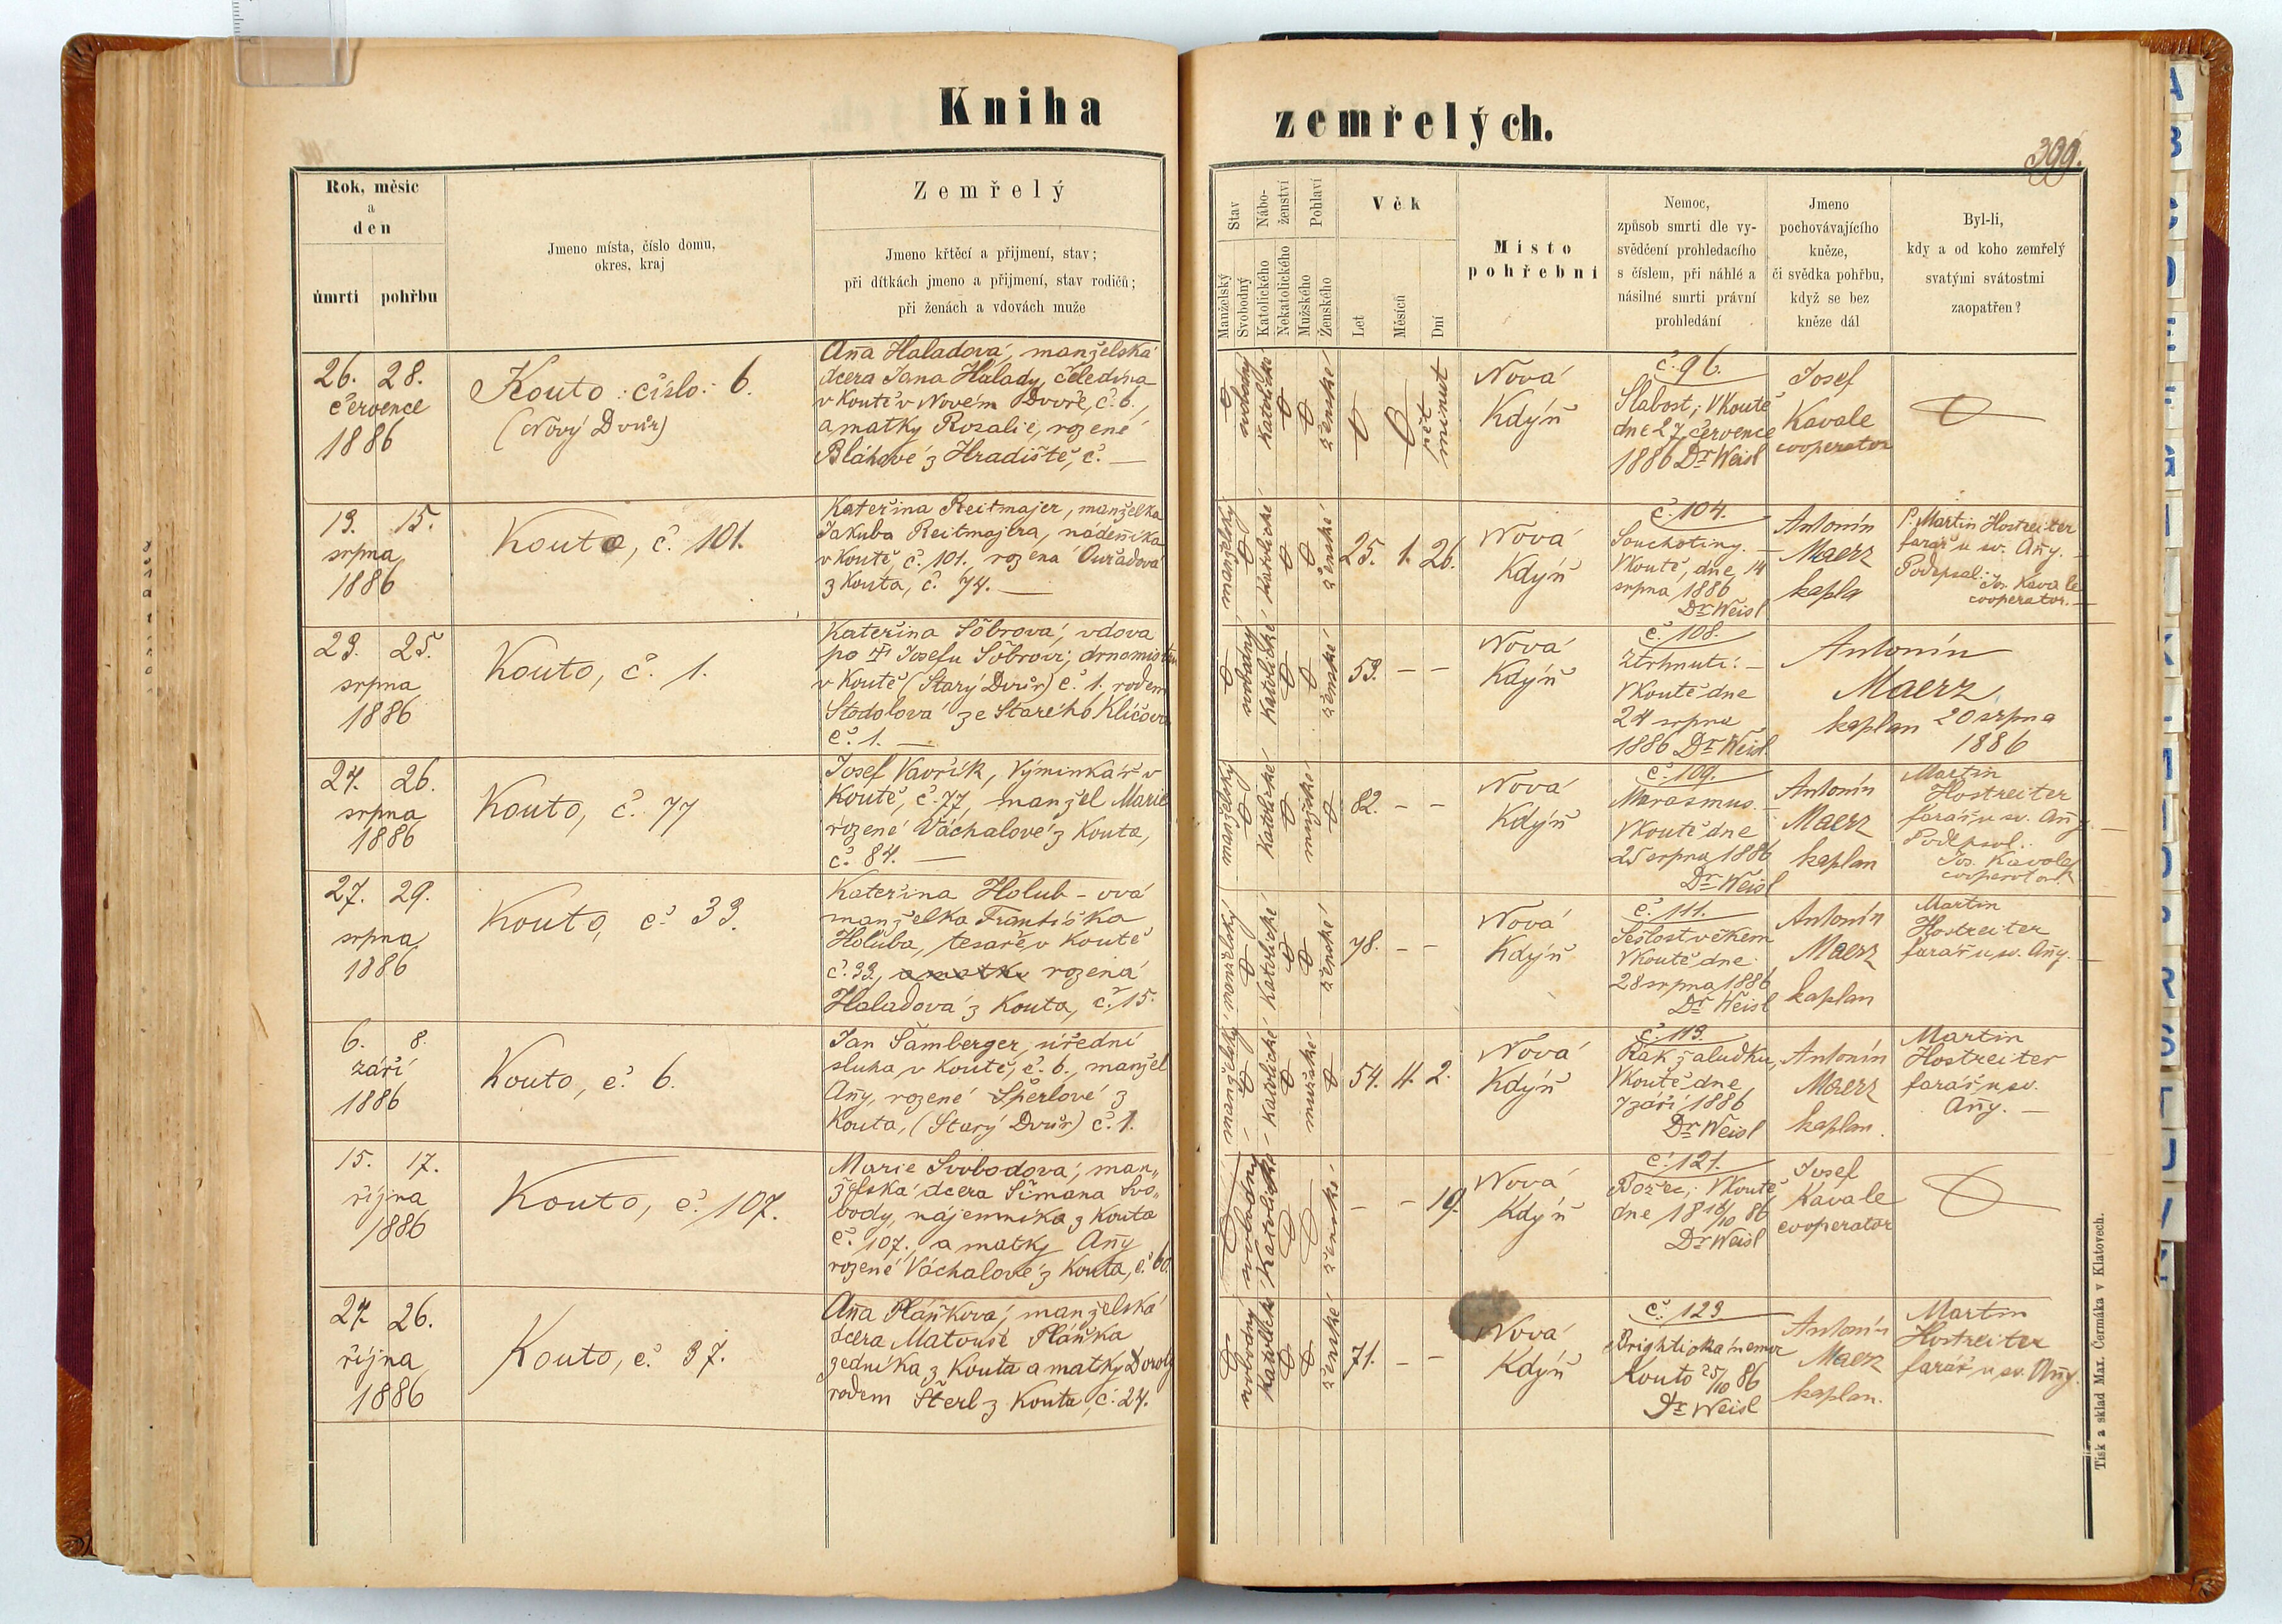 Kniha zemřelých.
399.
Rok, měsíc
a
den
úmrtí pohřbu
Jmeno místa, číslo domu,
okres, kraj
Zemřelý
Jmeno křtěcí a přijmení, stav;
při dítkách jmeno a přijmení, stav rodičů;
při ženách a vdovách muže
Stav
Manželský
Svobodný
Nábo-
ženství
Katolického
Nekatolického
Pohlaví
Mužského
Ženského
Věk
Let
Měsíců
Dní
Místo
pohřební
Nemoc,
způsob smrti dle vy-
svědčení prohledacího
s číslem, při náhlé a
násilné smrti právní
prohledání
Jmeno
pochovávajícího
kněze,
či svědka pohřbu,
když se bez
kněze dál
Byl-li,
kdy a od koho zemřelý
svatými svátostmi
zaopatřen?
26. 28.
července
1886
Kouto číslo: 6.
(Nový Dvůr)
Aña Haladová, manželská
dcera Jana Halady, čeledína
v Koutě v Novém Dvoře, č. 6.,
a matky Rosalie, rozené
Bláhové z Hradiště, č. —
svobodný
Katolické
ženské
pět
minut
Nová
Kdýň
č. 96.
Slabost; V Koutě
dne 27 července
1886 Dr Weisl
Josef
Kavale
cooperator
13. 15.
srpna
1886
Kouto, č. 101.
Kateřina Reitmajer, manželka
Jakuba Reitmajera, nádeníka
v Koutě, č. 101. rozená Ouřadová
z Kouta, č. 74. —
manželský
katolické
ženské
25. 1. 26.
Nová
Kdýň
č. 104.
Souchotiny. —
V Koutě, dne 14
srpna 1886
Dr Weisl
Antonín
Maerz
kapla
P. Martin Hostreiter
farář u sv. Añy. —
Podepsal: Jos. Kavale
cooperator. —
23. 25.
srpna
1886
Kouto, č. 1.
Kateřina Šöbrová, vdova
po † Josefu Šöbrovi,
v Koutě (Starý Dvůr) č. 1. rodem
Stodolová ze Starého Klíčova
č. 1. —
svobodný
Katolické
ženské
53. — —
Nová
Kdýň
č. 108.
Ztrhnutí: —
V Koutě dne
24 srpna
1886 Dr Weisl.
Antonín
Maerz,
kaplan 20 srpna
1886
24. 26.
srpna
1886
Kouto, č. 77
Josef Vavřík, Výminkář v
Koutě, č. 77, manžel Marie
rozené Váchalové z Kouta,
č. 84. —
manželský
Katolické
mužské
82. — —
Nová
Kdýň
č. 109.
Marasmus. —
V Koutě dne
25 srpna 1886
Dr Weisl
Antonín
Maerz
kaplan
Martin
Hostreiter
farář u sv. Añy. —
Podepsal:
Jos. Kavale
cooperator
27. 29.
srpna
1886
Kouto, č. 33.
Kateřina Holub-ová
manželka Františka
Holuba, tesaře v Koutě
č. 33, a matky rozená
Haladová z Kouta, č. 15.
manželský
Katolické
ženské
78. — —
Nová
Kdýň
č. 111.
Sešlost věkem
V Koutě dne
28 srpna 1886
Dr Weisl
Antonín
Maerz
kaplan
Martin
Hostreiter
farář u sv. Añy. —
6. 8.
září
1886
Kouto, č. 6.
Jan Šamberger, úřední
sluha v Koutě, č. 6., manžel
Añy, rozené Šperlové z
Kouta, (Starý Dvůr) č. 1.
manželský
Katolické
mužské
54. 4. 2.
Nová
Kdýň
č. 113.
Rak žaludku,
V Koutě dne
7 září 1886
Dr Weisl
Antonín
Maerz
kaplan.
Martin
Hostreiter
farář u sv.
Añy. —
15. 17.
října
1886
Kouto, č. 107.
Marie Svobodová, man„
želská dcera Šimana Svo„
body, nájemníka z Kouta
č. 107., a matky Añy
rozené Váchalové z Kouta, č. 60.
svobodný
Katolické
ženské
— — 19.
Nová
Kdýň
č. 121.
Božec; V Koutě
dne 18 18/10 86
Dr Weisl
Josef
Kavale
cooperator
24. 26.
října
1886
Kouto, č. 37.
Aña Pláňková, manželská
dcera Matouše Pláňka
zedníka z Kouta a matky Doroty
rodem Šterl z Kouta, č. 24.
svobodný
Katolické
ženské
71. — —
Nová
Kdýň
č. 123
Brightická nemoc
Kouto 25/10 86
Dr Weisl
Antonín
Maerz
kaplan.
Martin
Hostreiter
farář u sv. Añy.
Tisk a sklad Max. Čermáka v Klatovech.